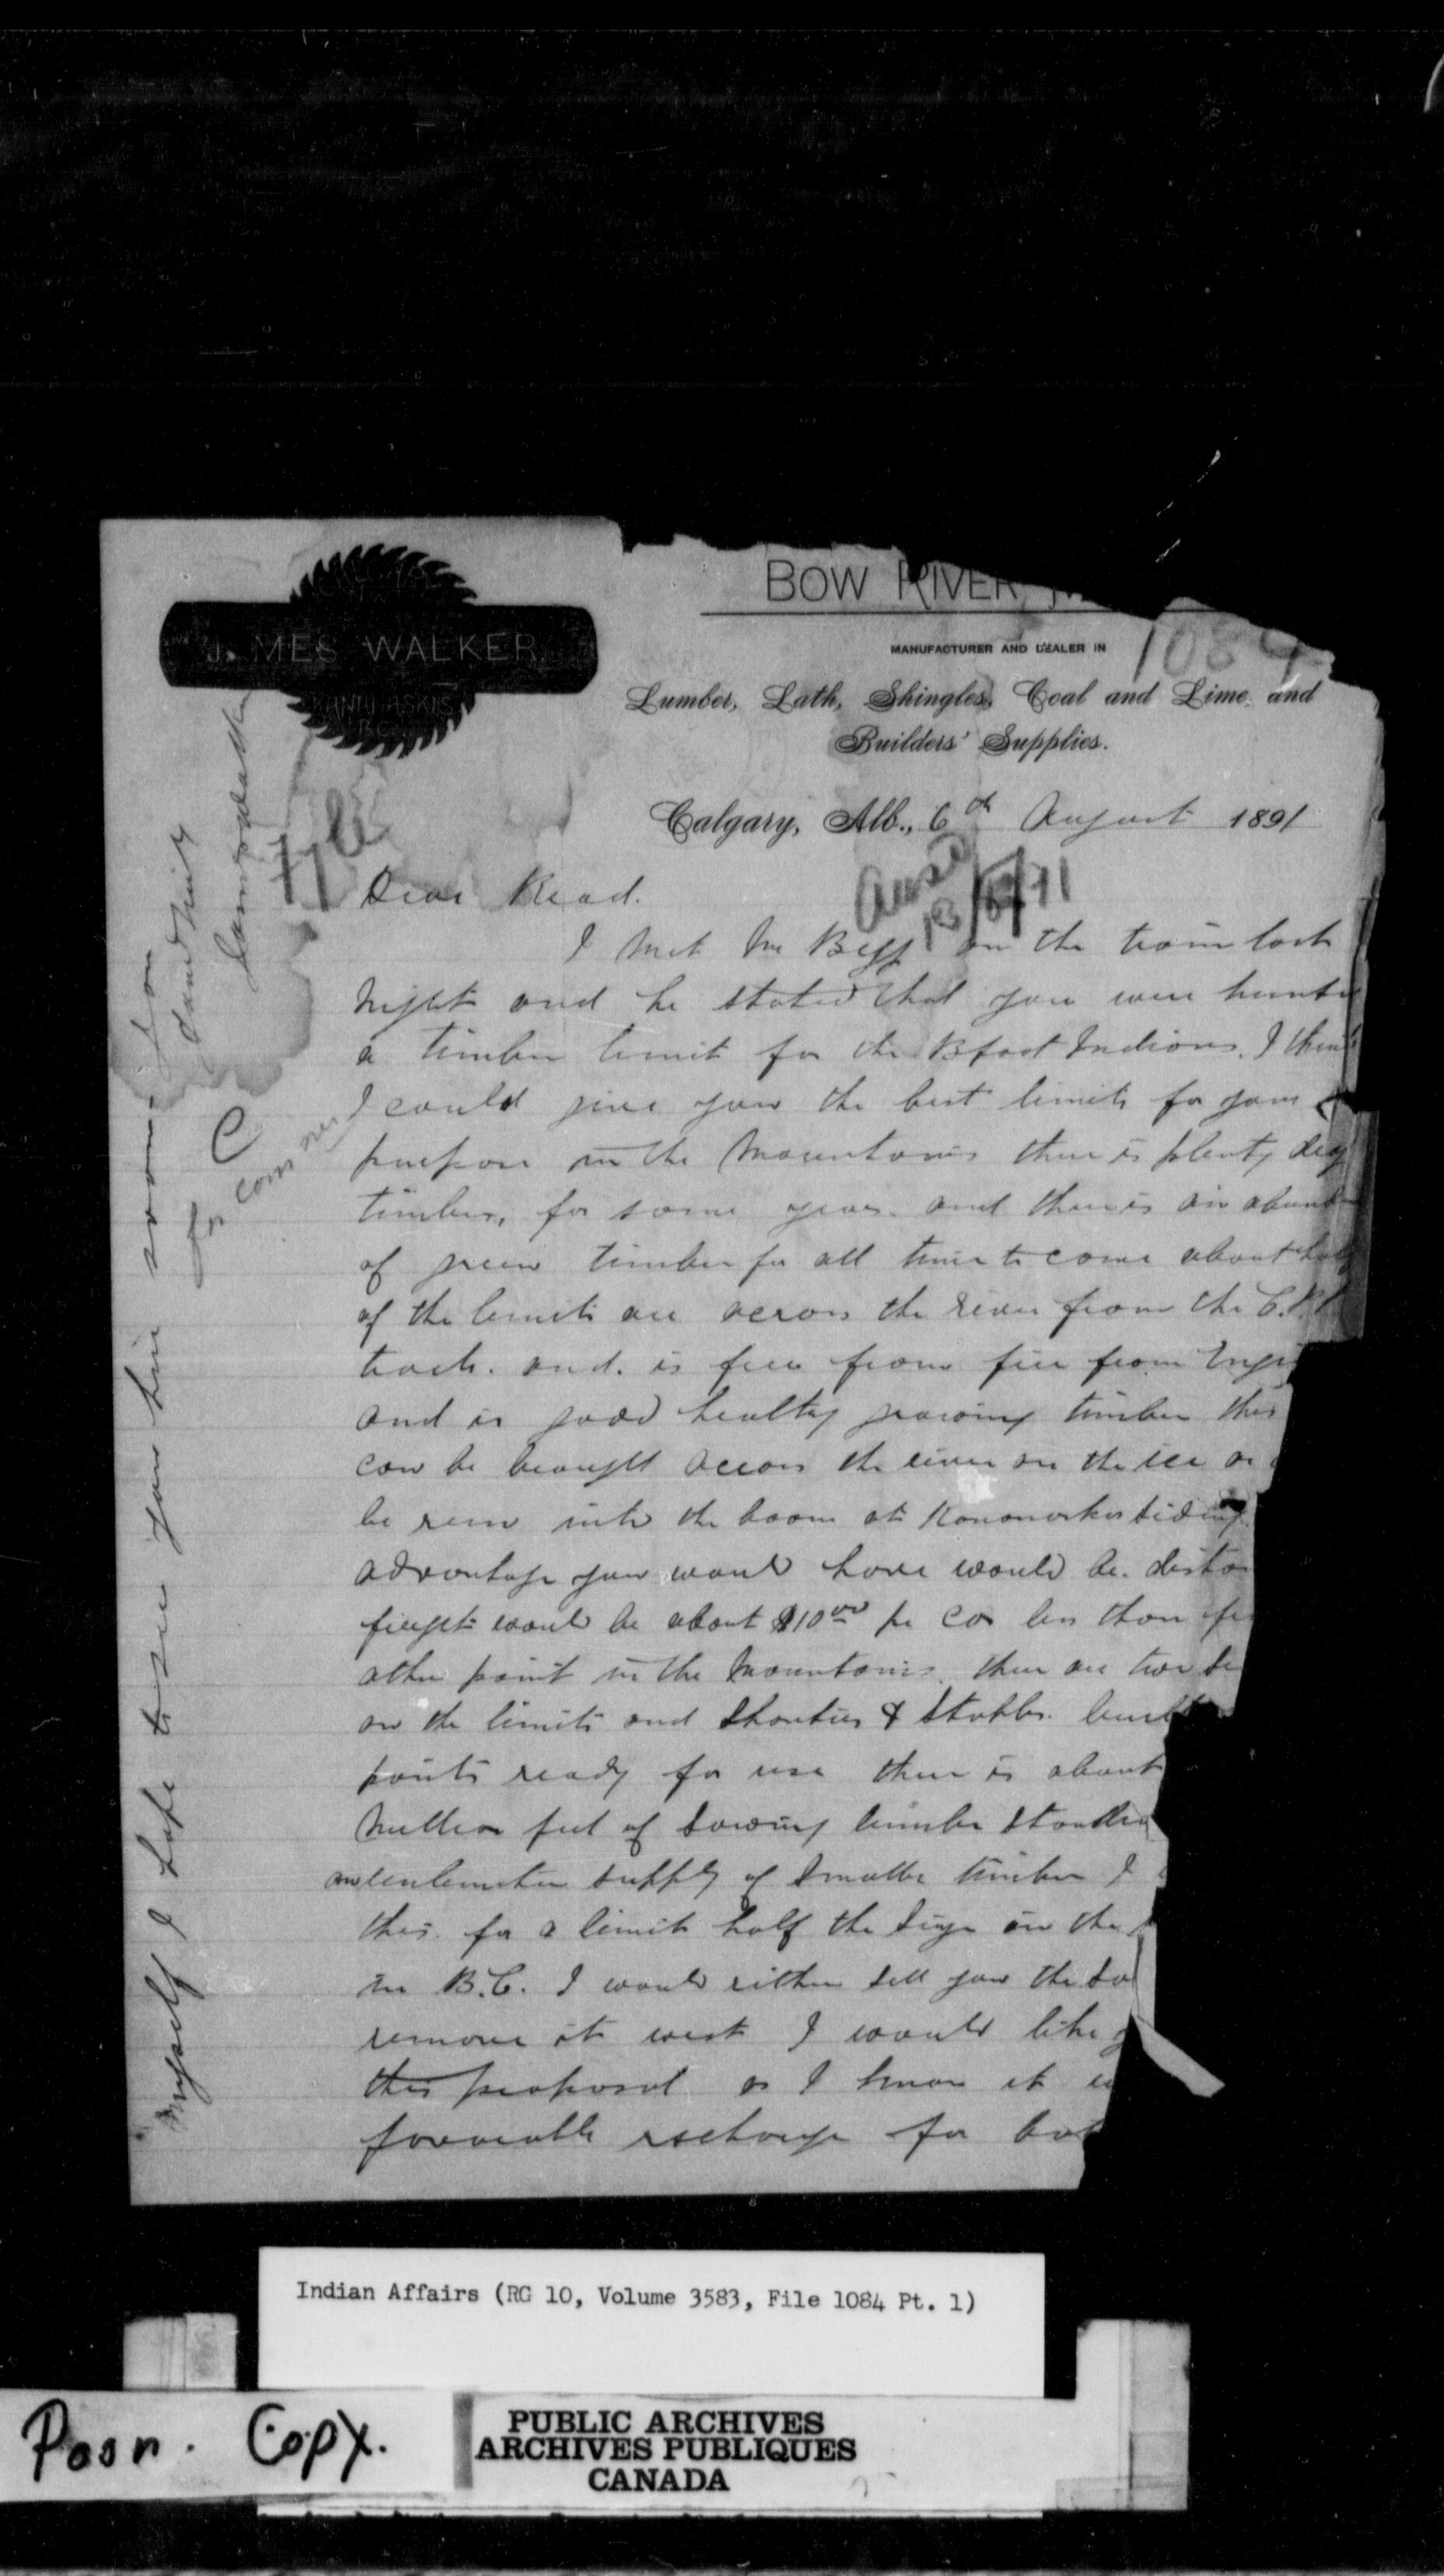 BOW RIVER
JAMES WALKER
KANANASKIS
MANUFACTURER AND DEALER IN
1084
Lumber, Lath, Shingles, Coal and Lime, and
Builders' Supplies.
Calgary, Alb., 6th August 1891
Dear Read.
I met Mr on the train last
night and he stated that you were
a timber limit for the Bfoot Indians. I think
I could give you the best limits for your
purpose in the Mountains there is plenty dry
timber, for some years. and there is an
of green timber for all time to come about half
of the limits are across the river from the C.P.
track. and. is free from fire from
and is good healthy growing timber this
can be brought across the river on the ice or
be run into the boom at siding
advantage you would have would be.
freight would be about $10.00 per car less than
other point in the Mountains. there are two
on the limits and Shanties & Stables. built
points ready for use there is about
Million feet of sawing timber
supply of smaller timber I
this. for a limit half the size on the
in B.C. I would either sell you the
remove it west I would like
this proposal as I know it
favourable exchange for
myself I hope to see you here soon
Indian Affairs (RG 10, Volume 3583, File 1084 Pt. 1)
Poor. Copy.
PUBLIC ARCHIVES
ARCHIVES PUBLIQUES
CANADA